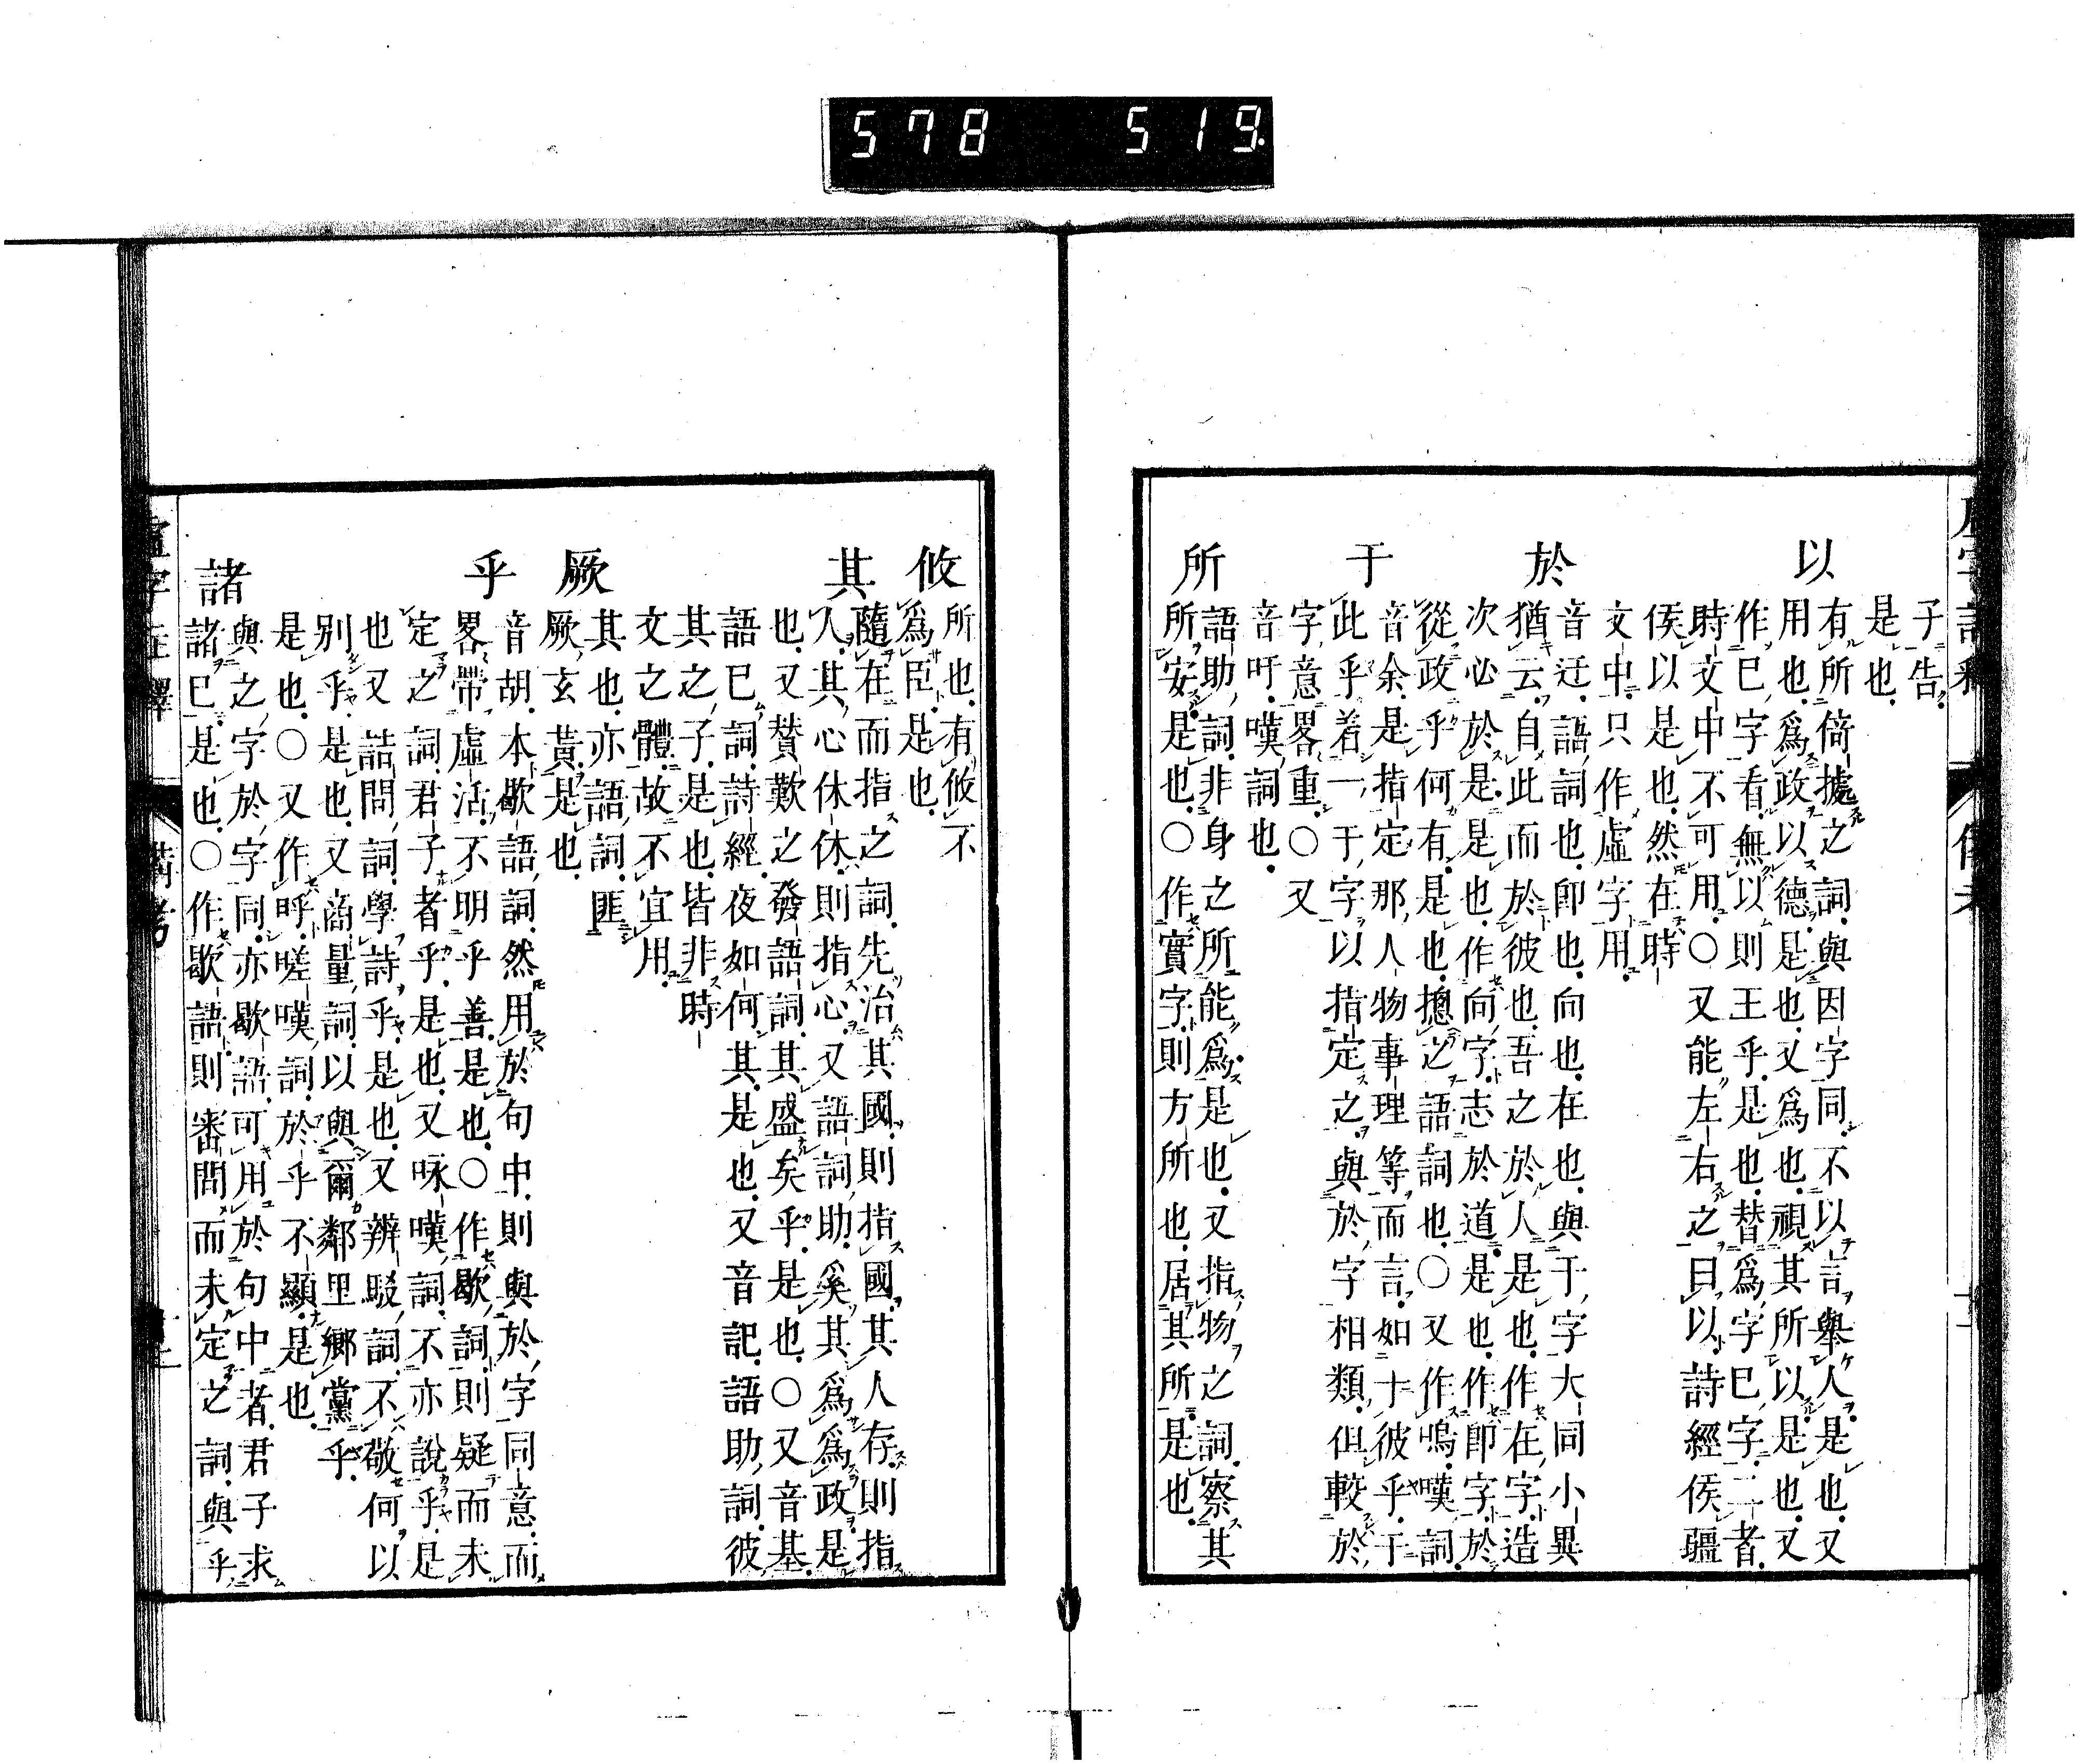 578 519
子告
是也
以
有所倚據之詞與因字同不以言舉人是也又
用也爲政以德是也又爲也視其所以是也又
作已字看無以則王乎是也替爲字已字二者
時文中不可用○又能左右之曰以詩經侯疆
侯以是也然在時
文中只作虛字用
於
音迂語詞也卽也向也在也與于字大同小異
猶云自此而於彼也吾之於人是也作在字造
次必於是是也作向字志於道是也作卽字於
從政乎何有是也摠之語詞也○又作嗚嘆詞
于
音余是指定那人物事理等而言如十彼乎于
此乎着一于字以指定之與於字相類但較於
字意畧重○又
音吁嘆詞也
所
語助詞非身之所能爲是也又指物之詞察其
所安是也○作實字則方所也居其所是也
攸
所也有攸不
爲臣是也
其
隨在而指之詞先治其國則指國其人存則指
人其心休休則指心又語詞助奚其爲爲政是
也又賛歎之發語詞其盛矣乎是也○又音基
語已詞詩經夜如何其是也又音記語助詞彼
其之子是也皆非時
文之體故不宜用
厥
其也亦語詞匪
厥玄黃是也
乎
音胡本歇語詞然用於句中則與於字同意而
畧帶虛活不明乎善是也○作歇詞則疑而未
定之詞君子者乎是也又咏嘆詞不亦說乎是
也又詰問詞學詩乎是也又辨駁詞不敬何以
別乎是也又商量詞以與爾鄰里鄉黨乎
是也○又作呼嗟嘆詞於乎不顯是也
諸
與之字於字同亦歇語可用於句中者君子求
諸已是也○作歇語則審問而未定之詞與乎